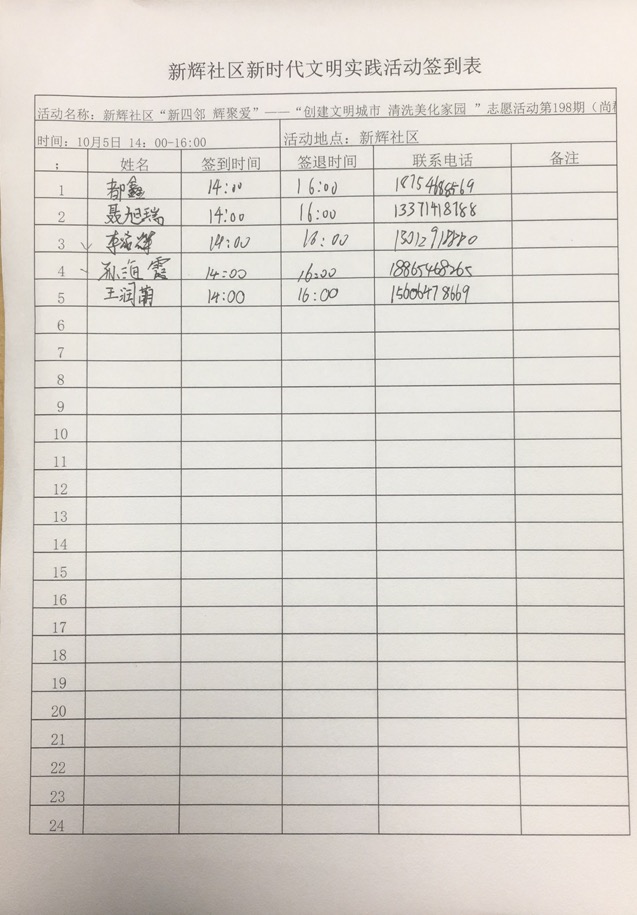 新辉社区新时代文明实践活动签到表
活动名称：新辉社区“新四邻 辉聚爱”——“创建文明城市 清洗美化家园 ”志愿活动第198期（尚
时间：10月5日 14：00-16:00 活动地点：新辉社区
： 姓名 签到时间 签退时间 联系电话 备注
1 郝鑫 14:00 16:00
2 聂旭瑞 14:00 16:00 13371418788
3 14:00 16:00
4 孙海霞 14:00 16:00 18865468265
5 王润萌 14:00 16:00 15606478669
6
7
8
9
10
11
12
13
14
15
16
17
18
19
20
21
22
23
24